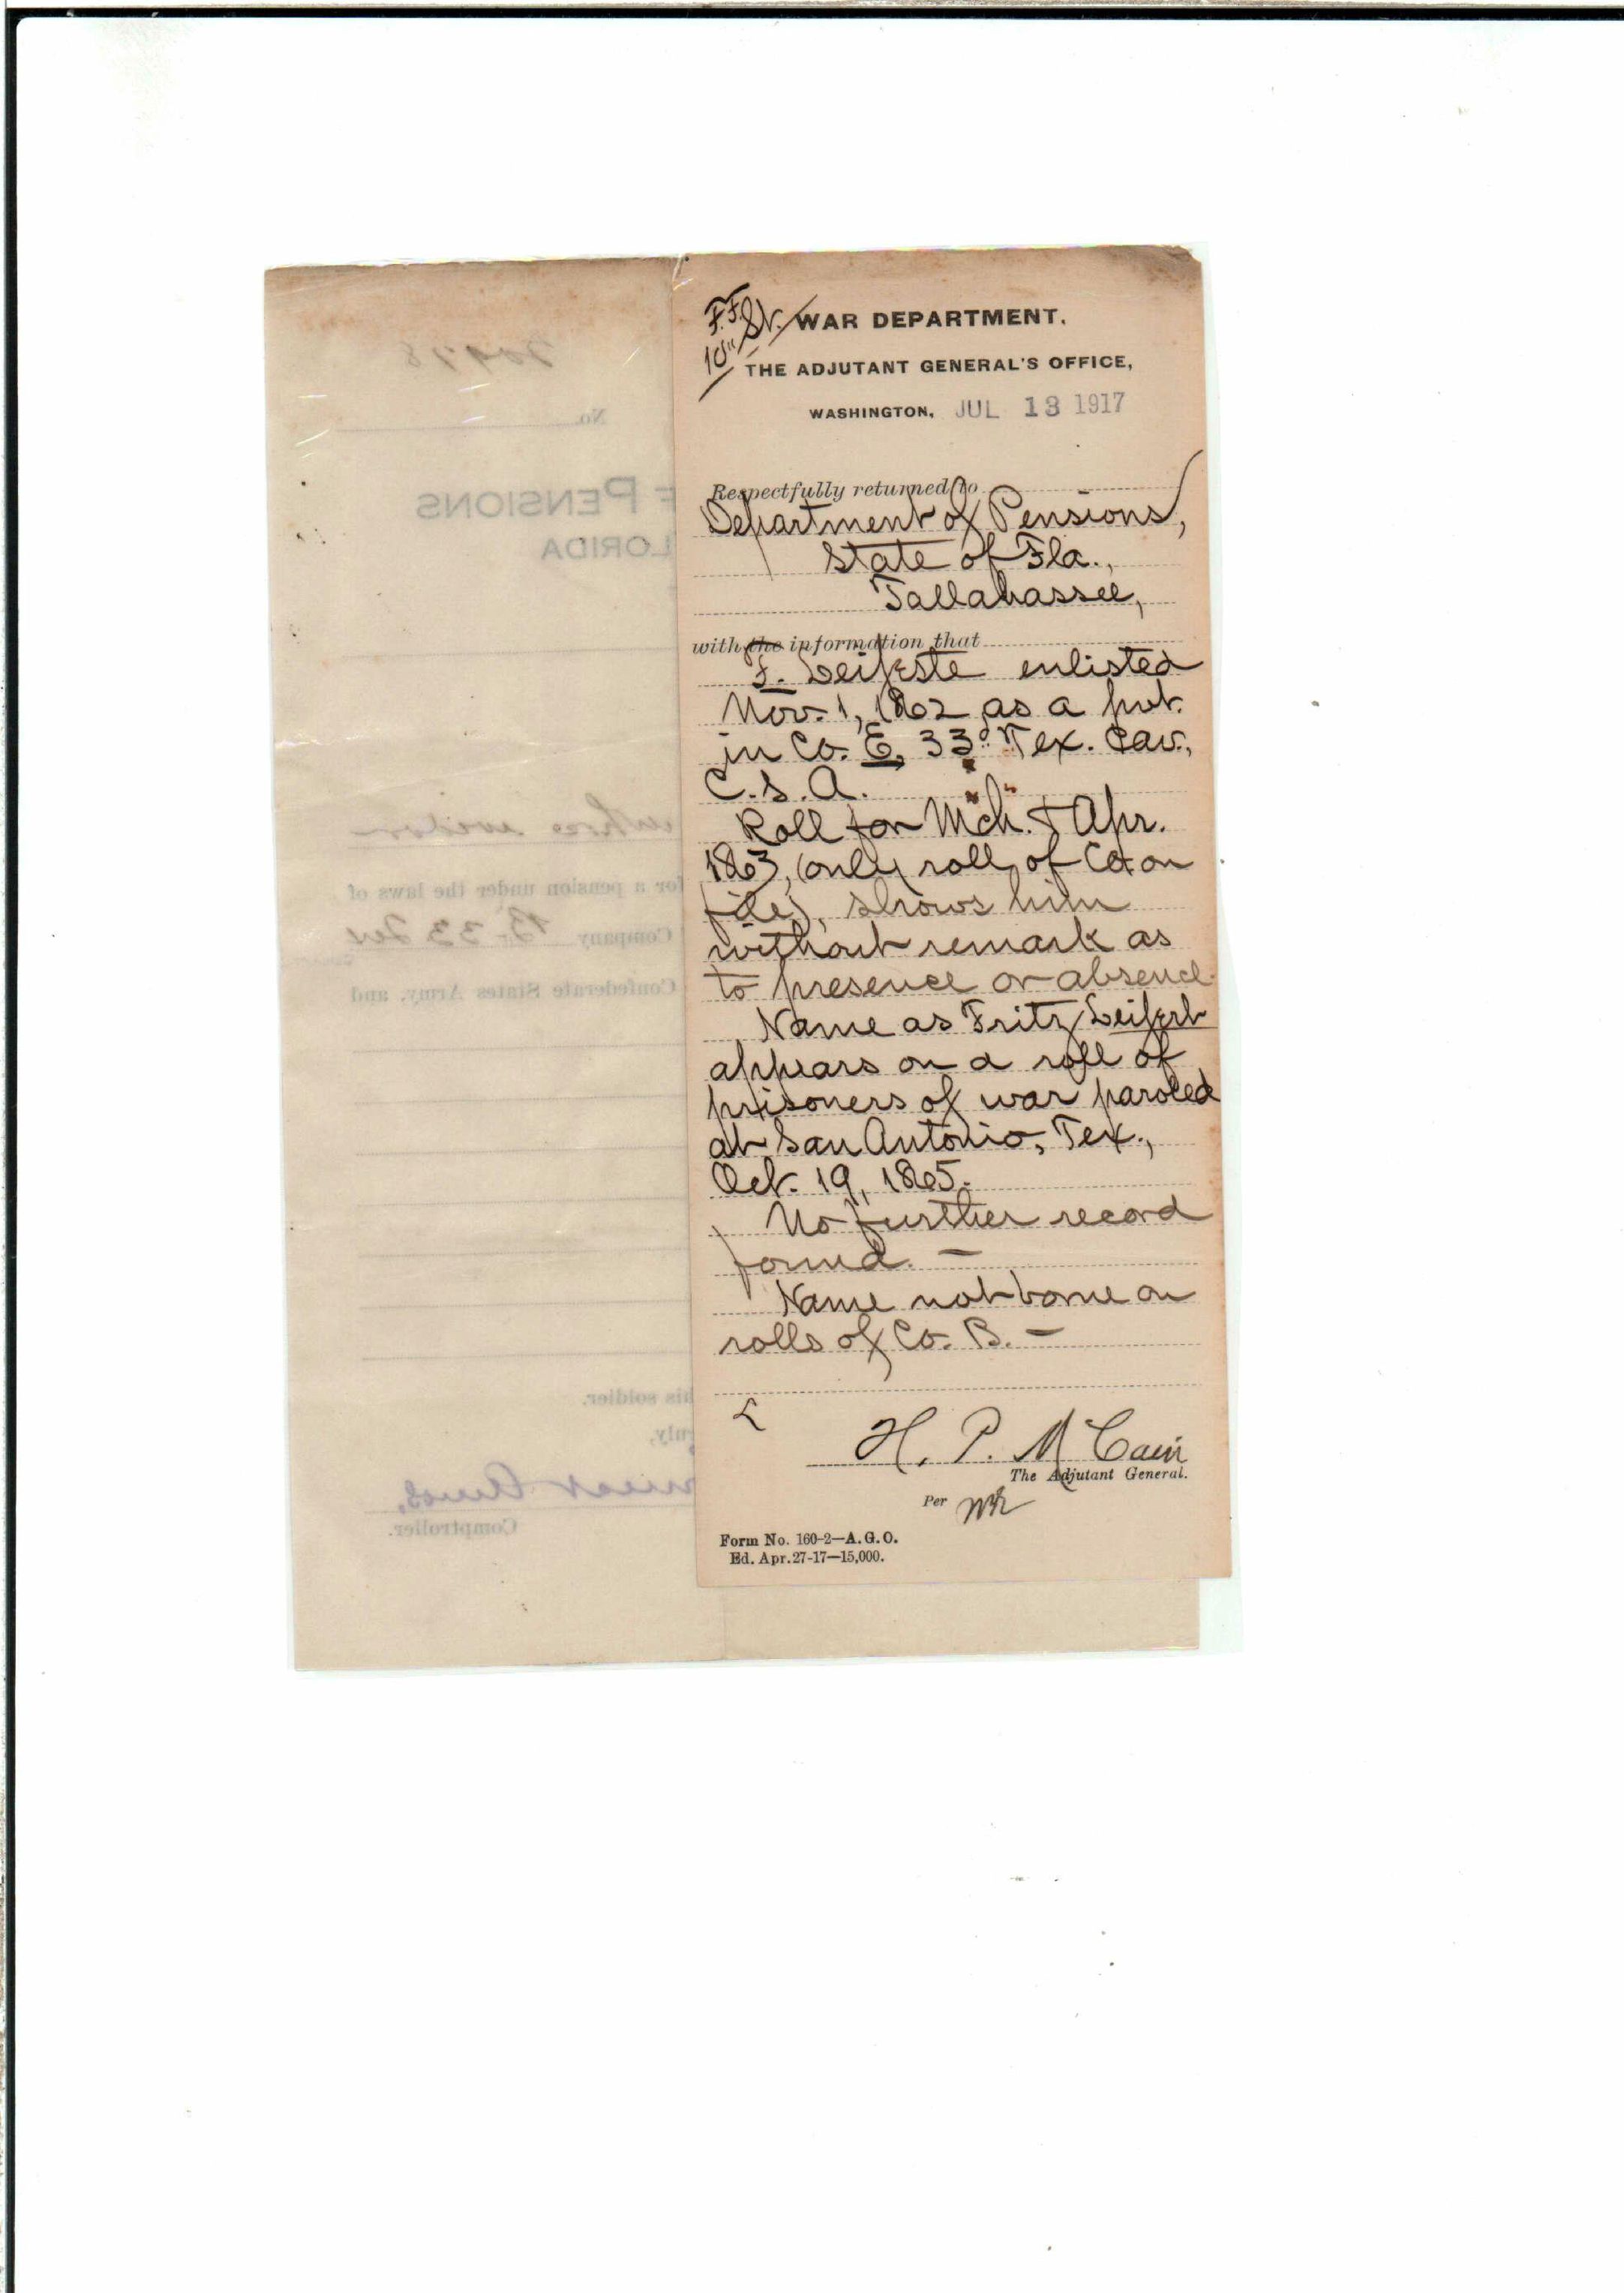 F.F.
St.
10"
WAR DEPARTMENT.
THE ADJUTANT GENERAL'S OFFICE,
WASHINGTON, JUL 13 1917
Respectfully returned to
Department of Pensions,
State of Fla.,
Tallahassee,
with the information that
F. Leifeste enlisted
Nov. 1, 1862 as a pvt.
in Co. E, 33d Tex. Cav.,
C.S.A.
Roll for Mch. & Apr.
1863, (only roll of Co. on
file), shows him
without remark as
to presence or absence.
Name as Fritz Leifert
appears on a roll of
prisoners of war paroled
at San Antonio, Tex.,
Oct. 19, 1865.
No further record
found. —
Name not borne on
rolls of Co. B. —
L
H. P. McCain
The Adjutant General.
Per
Form No. 160-2—A.G.O.
Ed. Apr. 27-17—15,000.
No.
F PENSIONS
LORIDA
whose widow
for a pension under the laws of
Company B. 33 Tex
Confederate States Army, and
his soldier.
ruly,
Amos,
Comptroller.